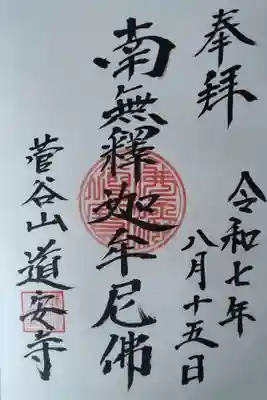 奉拜
令和七年
八月十五日
南無釋迦牟尼佛
菅谷山道安寺